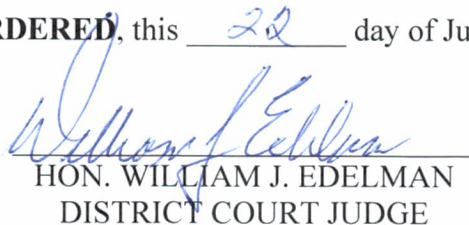 RDERED, this 22 day of Ju
William J Edelman
HON. WILLIAM J. EDELMAN
DISTRICT COURT JUDGE